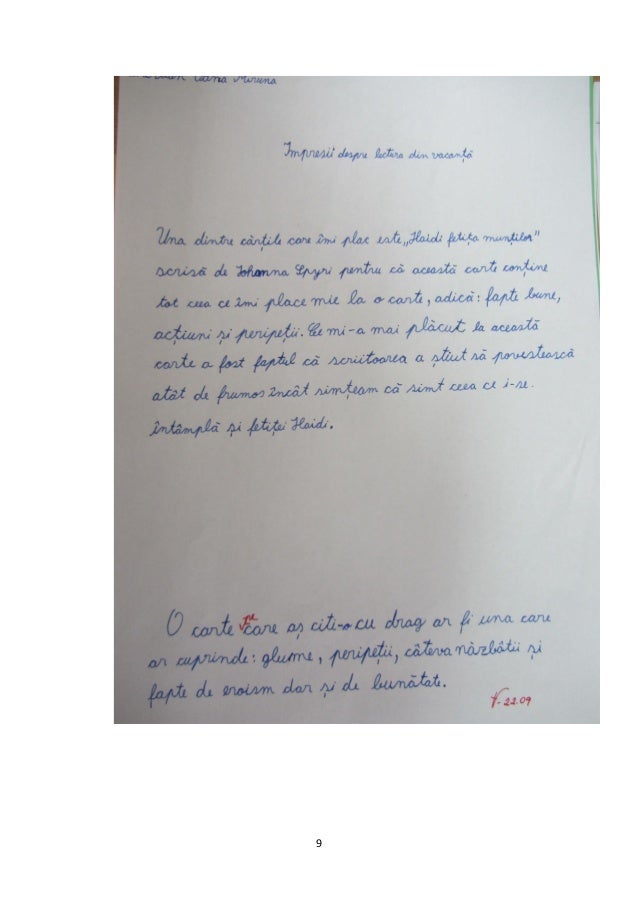 Miruna
Impresii despre lectura din vacanță
Una dintre cărțile care îmi plac este „Haidi fetița munților"
scrisă de Iohanna Spyri pentru că această carte conține
tot ceea ce îmi place mie la o carte, adică: fapte bune,
acțiuni și peripeții. Ce mi-a mai plăcut la această
carte a fost faptul că scriitoarea a știut să povestească
atât de frumos încât simțeam că simt ceea ce i-se
întâmplă și fetiței Haidi.
O carte pe care aș citi-o cu drag ar fi una care
ar cuprinde: glume, peripeții, câteva năzbâtii și
fapte de eroism dar și de bunătate.
22.09
9